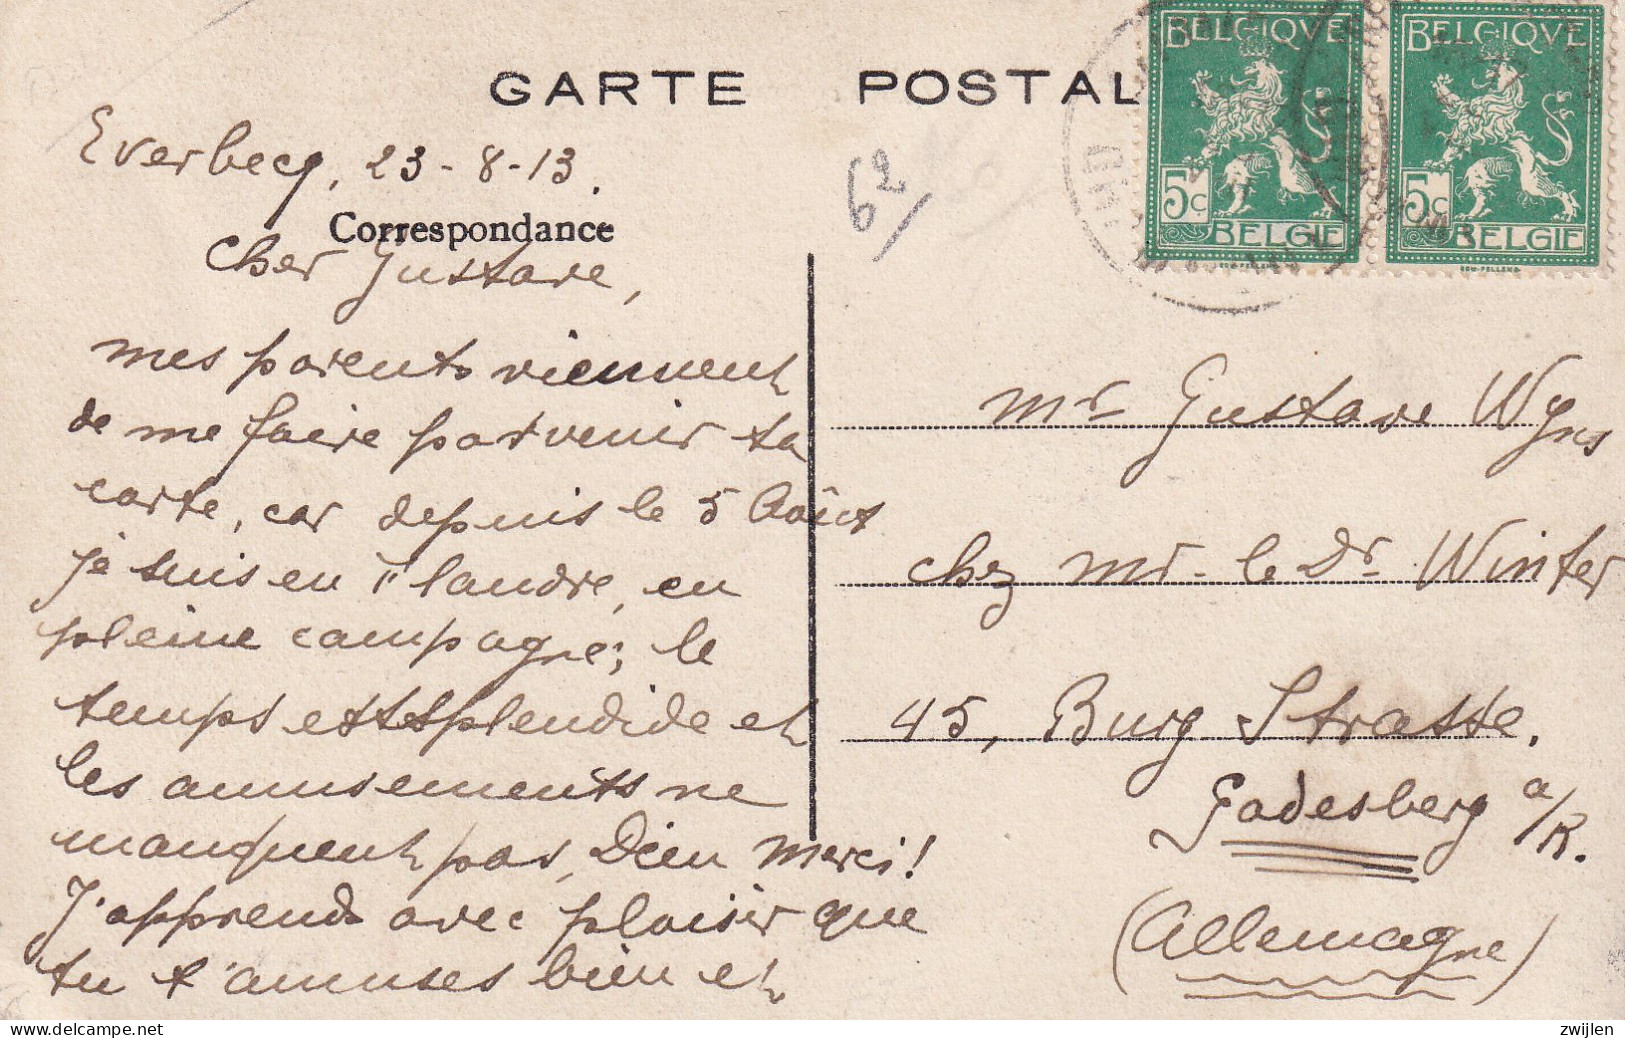 GARTE POSTAL
Everbecq, 23-8-13.
Correspondance
Cher Gustave,
mes parents viennent
de me faire parvenir ta
carte, car depuis le 5 Août
je suis en Flandre, en
pleine campagne; le
temps est splendide et
les amusements ne
manquent pas, Dieu merci!
J'apprends avec plaisir que
tu t'amuses bien et
62/
BELGIQVE
5c
BELGIE
BELGIQVE
5c
BELGIE
Mr Gustave Wyns
chez Mr. le Dr Winter
45, Burg Strasse.
Godesberg a/R.
(Allemagne)
zwijlen